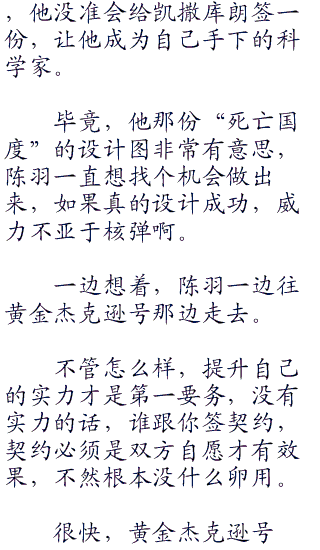 ，他没准会给凯撒库朗签一
份，让他成为自己手下的科
学家。
毕竟，他那份“死亡国
度”的设计图非常有意思，
陈羽一直想找个机会做出
来，如果真的设计成功，威
力不亚于核弹啊。
一边想着，陈羽一边往
黄金杰克逊号那边走去。
不管怎么样，提升自己
的实力才是第一要务，没有
实力的话，谁跟你签契约，
契约必须是双方自愿才有效
果，不然根本没什么卵用。
很快，黄金杰克逊号